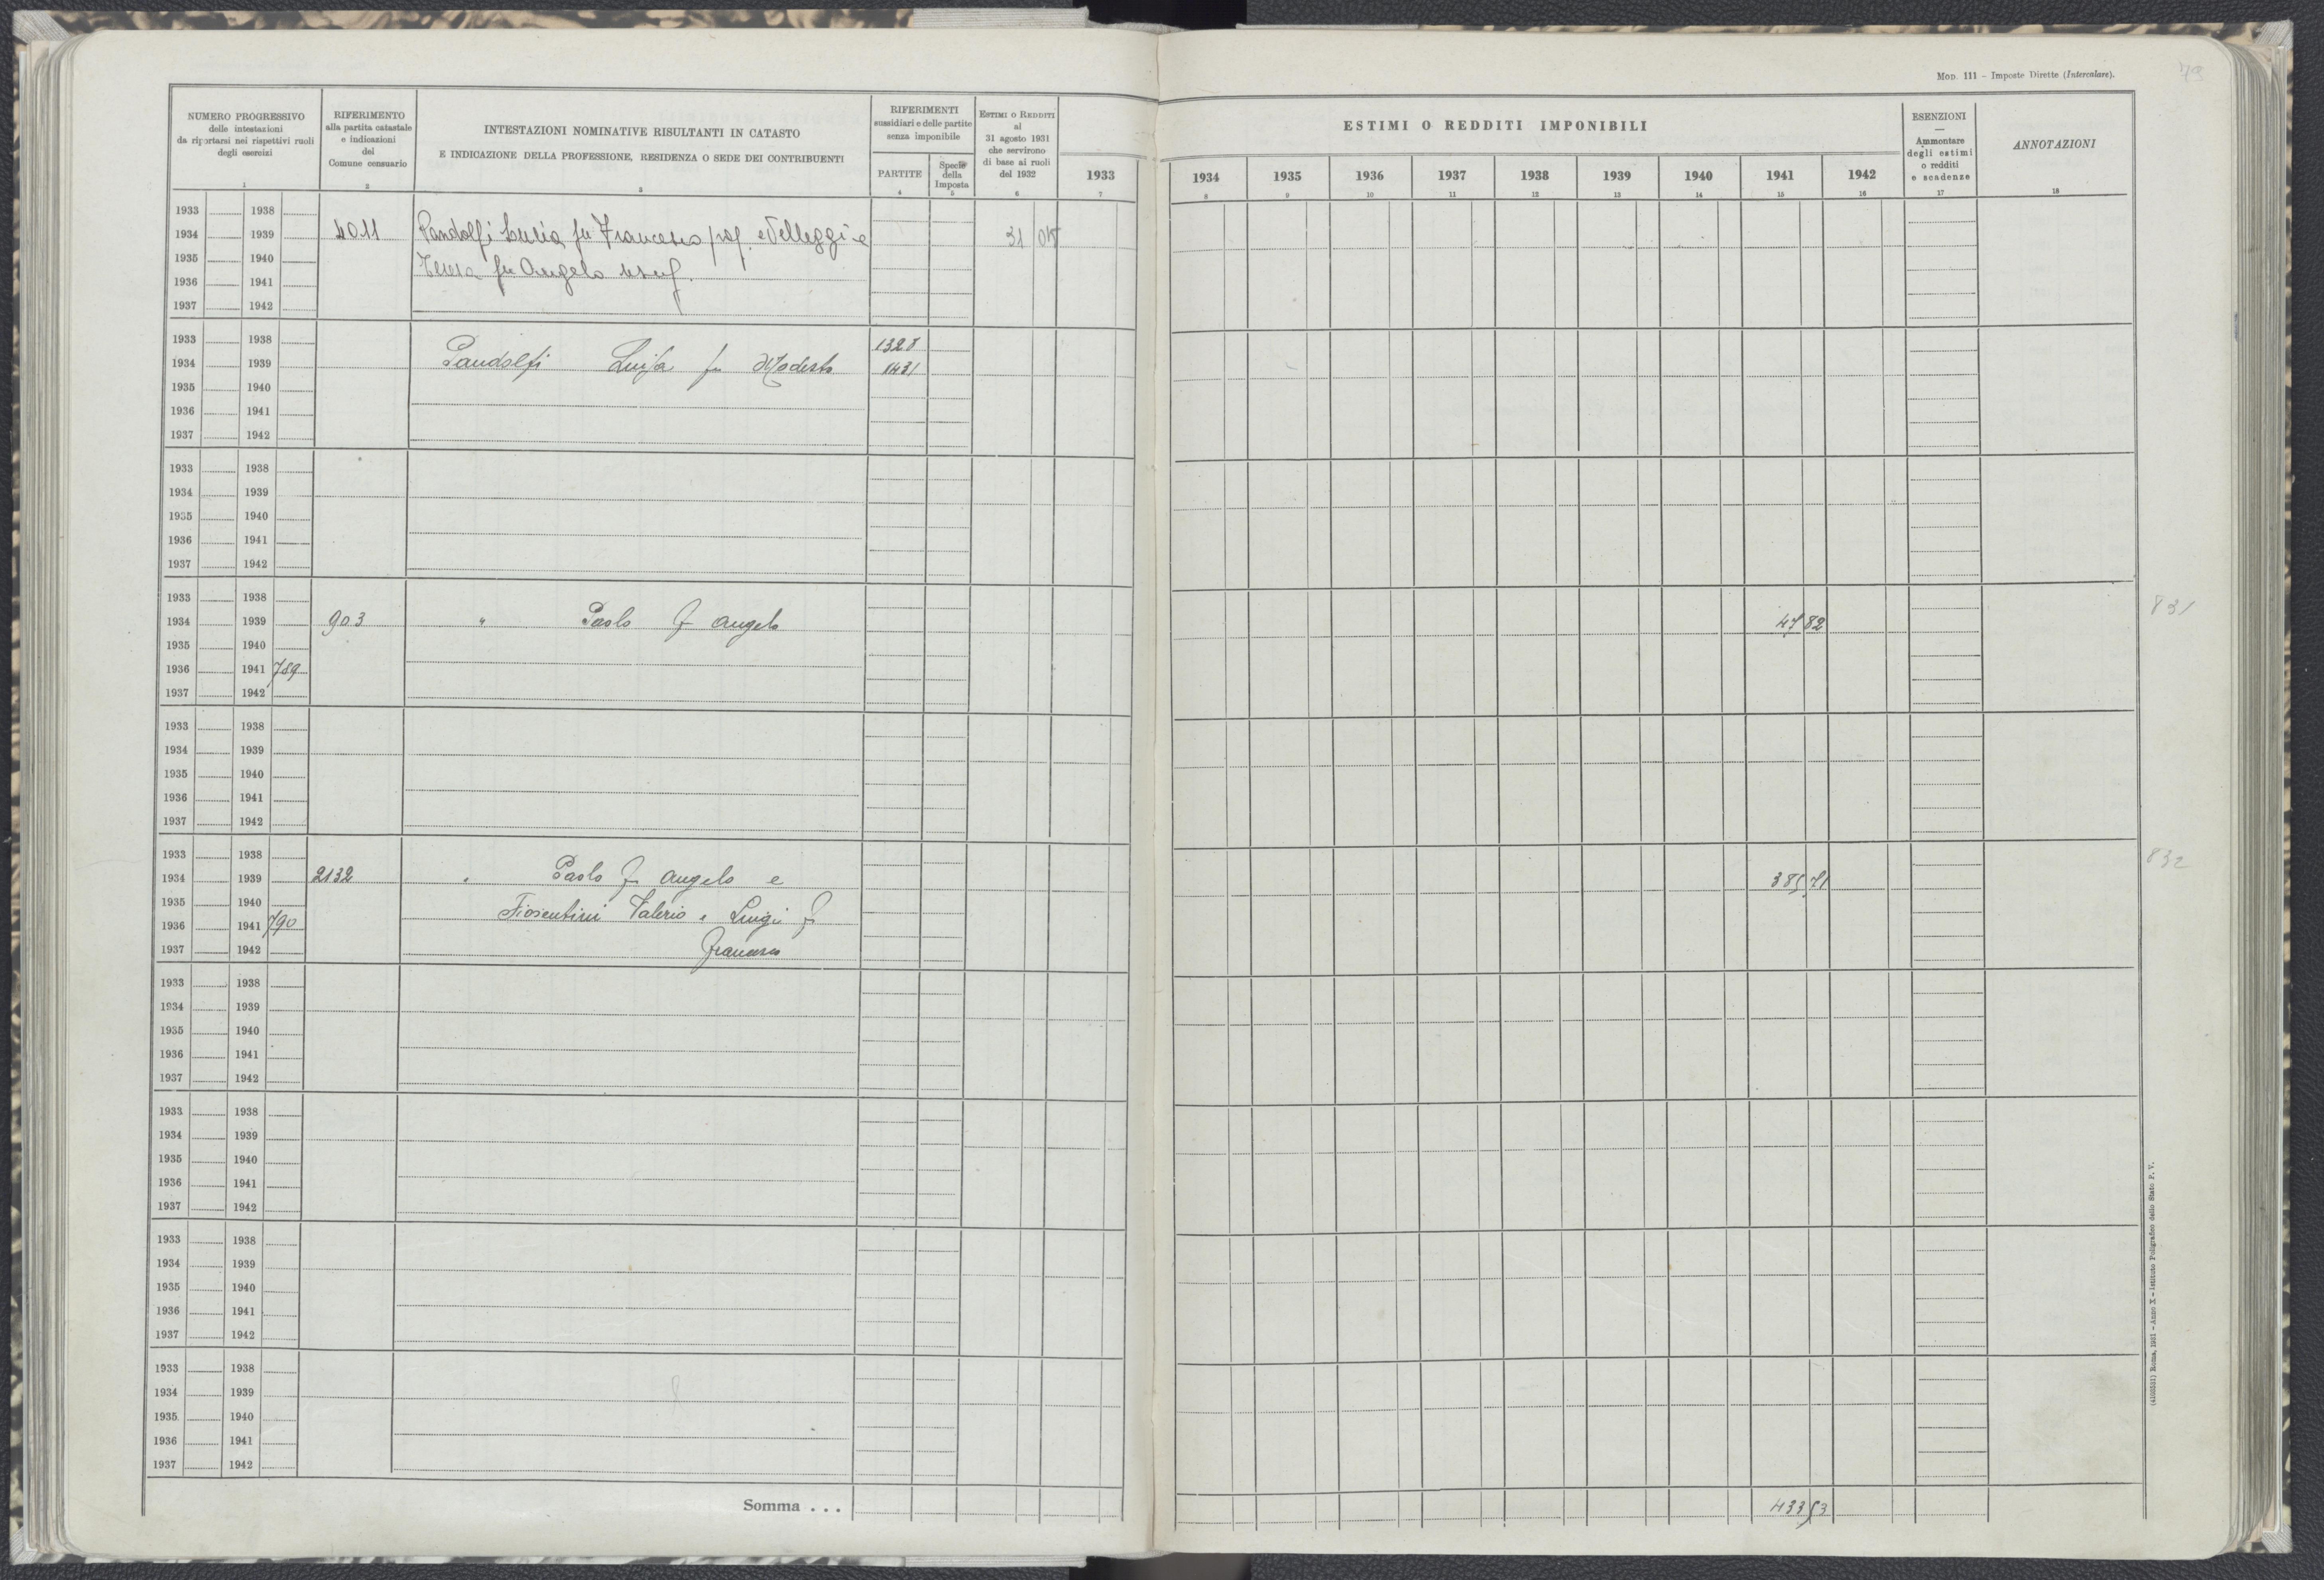 MOD. 111 – Imposte Dirette (Intercalare).
79
NUMERO PROGRESSIVO
delle intestazioni
da riportarsi nei rispettivi ruoli
degli esercizi
1
RIFERIMENTO
alla partita catastale
e indicazioni
del
Comune censuario
2
INTESTAZIONI NOMINATIVE RISULTANTI IN CATASTO
E INDICAZIONE DELLA PROFESSIONE, RESIDENZA O SEDE DEI CONTRIBUENTI
3
RIFERIMENTI
sussidiari e delle partite
senza imponibile
PARTITE
4
Specie
della
Imposta
5
ESTIMI O REDDITI
al
31 agosto 1931
che servirono
di base ai ruoli
del 1932
6
1933
7
ESTIMI O REDDITI IMPONIBILI
1934 1935 1936 1937 1938 1939 1940 1941 1942
8 9 10 11 12 13 14 15 16
ESENZIONI
—
Ammontare
degli estimi
o redditi
e scadenze
17
ANNOTAZIONI
18
1933 1938
1934 1939 4011 Pandolfi Lucia fu Francesco prop. e Velleggi 31 04
1935 1940 Teresa fu Angelo usuf.
1936 1941
1937 1942
1933 1938 1328
1934 1939 Pandolfi Luisa fu Modesto 1431
1935 1940
1936 1941
1937 1942
1933 1938
1934 1939
1935 1940
1936 1941
1937 1942
1933 1938 831
1934 1939 903 " Paolo fu Angelo 47 82
1935 1940
1936 1941 789
1937 1942
1933 1938
1934 1939
1935 1940
1936 1941
1937 1942
1933 1938 832
1934 1939 2132 " Paolo fu Angelo e 385 71
1935 1940
1936 1941 790 Fiorentini Valerio e Luigi fu
1937 1942 Francesco
1933 1938
1934 1939
1935 1940
1936 1941
1937 1942
1933 1938
1934 1939
1935 1940
1936 1941
1937 1942
1933 1938
1934 1939
1935 1940
1936 1941
1937 1942
1933 1938
1934 1939
1935 1940
1936 1941
1937 1942
Somma . . . 433 53
(4103531) Roma, 1931 – Anno X – Istituto Poligrafico dello Stato P. V.